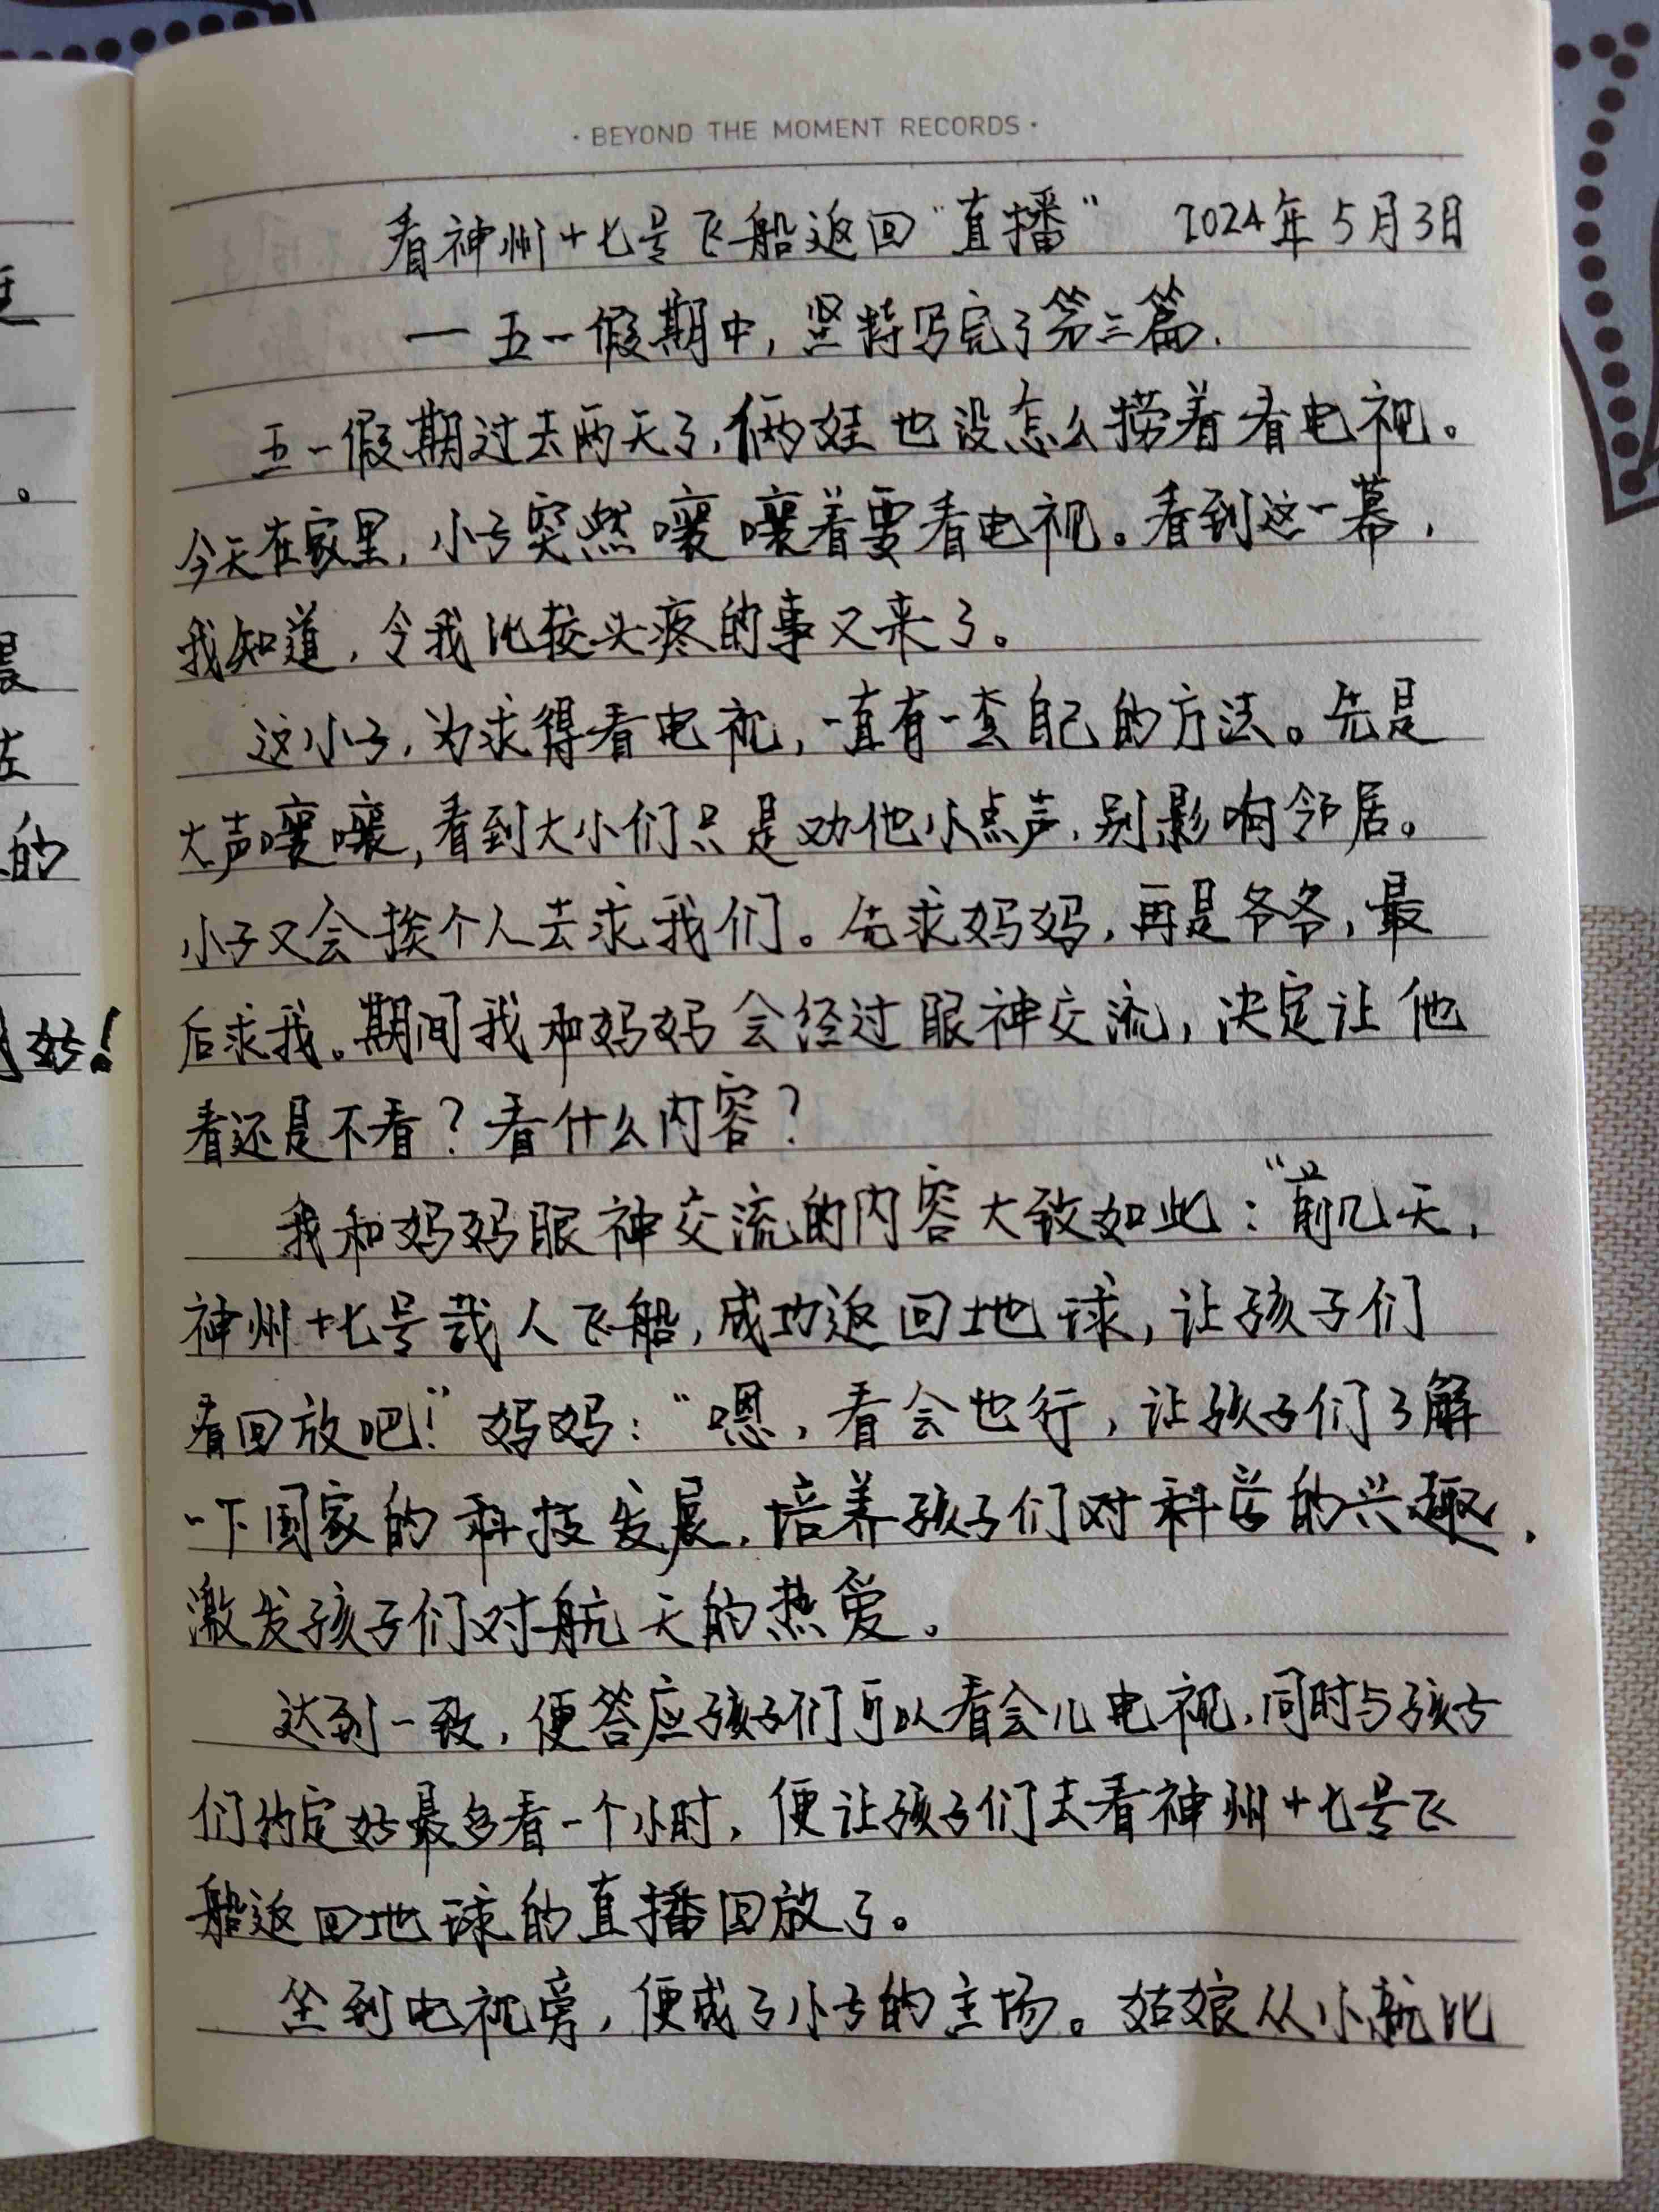 · BEYOND THE MOMENT RECORDS ·
看神州十七号飞船返回"直播" 2024年5月3日
一五一假期中，坚持写完了第三篇.
五一假期过去两天了，俩娃也没怎么捞着看电视。
今天在家里，小子突然嚷嚷着要看电视。看到这一幕，
我知道，令我比较头疼的事又来了。
这小子，为求得看电视，一直有一套自己的方法。先是
大声嚷嚷，看到大小们只是劝他小点声，别影响邻居。
小子又会挨个人去求我们。先求妈妈，再是爷爷，最
后求我。期间我和妈妈会经过眼神交流，决定让他
看还是不看？看什么内容？
我和妈妈眼神交流的内容大致如此："前几天，
神州十七号载人飞船，成功返回地球，让孩子们
看回放吧！"妈妈："嗯，看会也行，让孩子们了解
一下国家的科技发展，培养孩子们对科学的兴趣，
激发孩子们对航天的热爱。
达到一致，便答应孩子们可以看会儿电视，同时与孩子
们约定好最多看一个小时，便让孩子们去看神州十七号飞
船返回地球的直播回放了。
坐到电视旁，便成了小子的主场。姑娘从小就比
。
的
好！